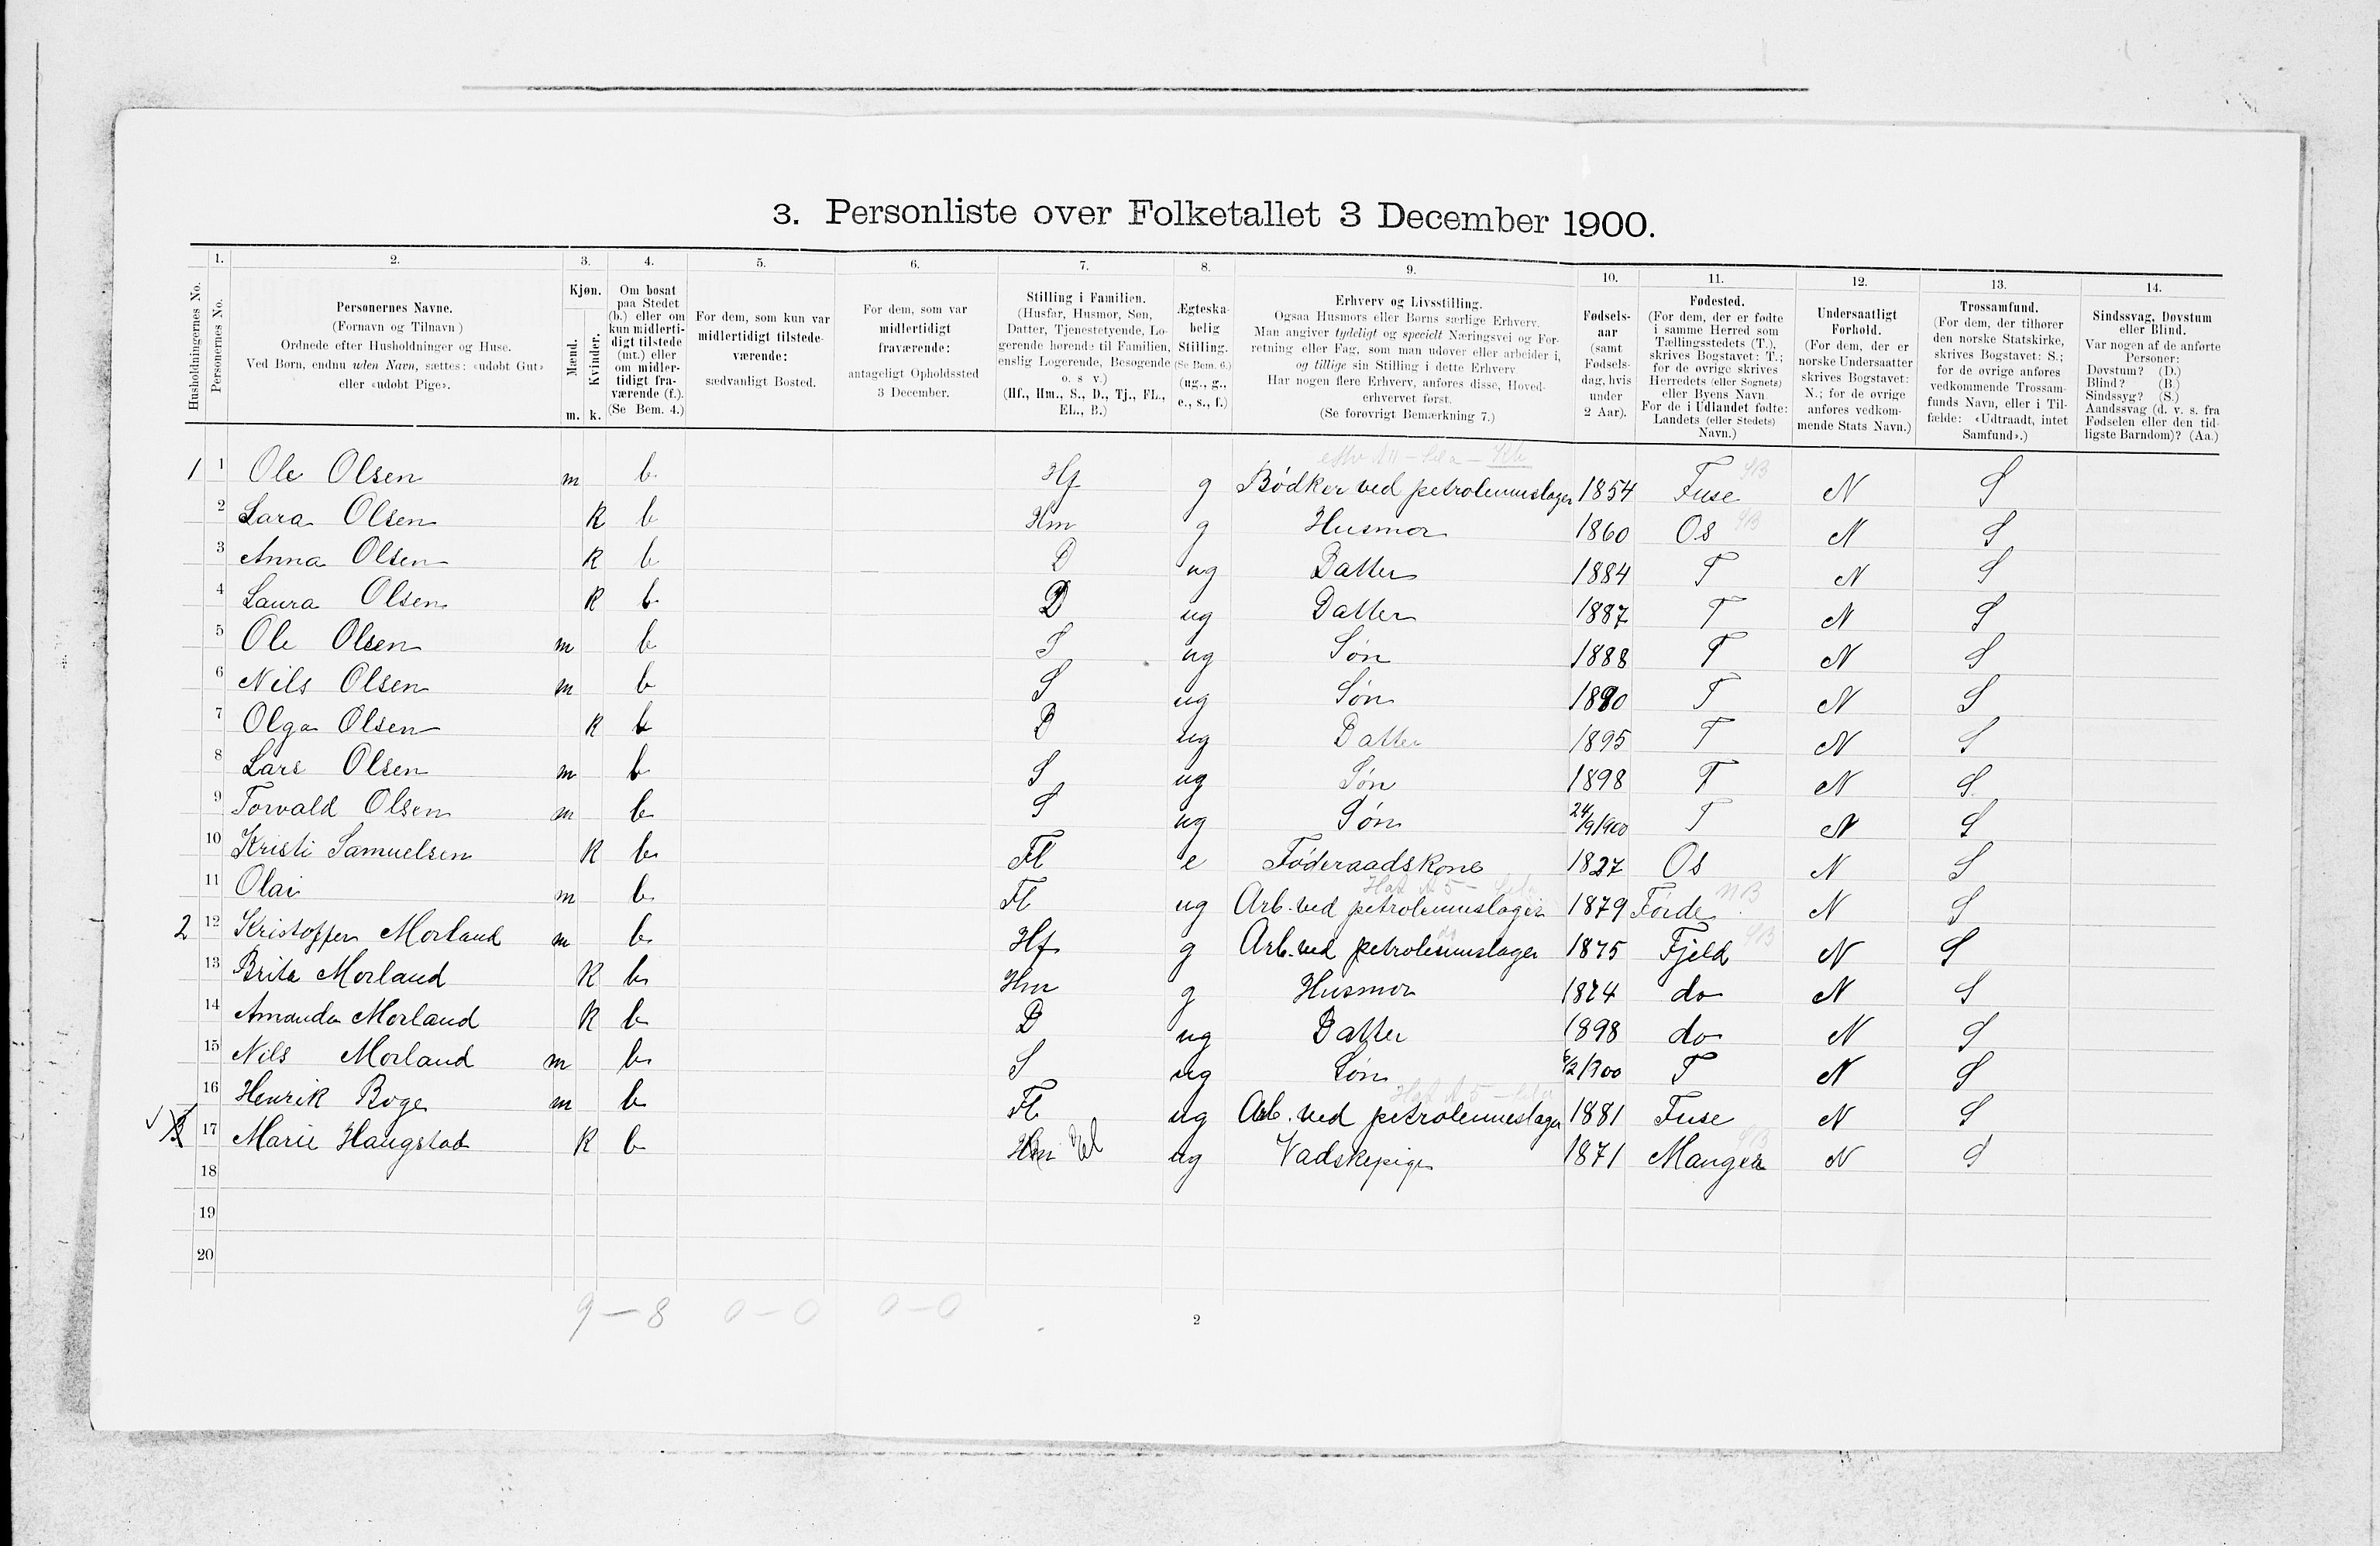 3. Personliste over Folketallet 3 December 1900.
1. 2. 3. 4. 5. 6. 7. 8. 9. 10. 11. 12. 13. 14.
Husholdningernes No.
Personernes No.
Personernes Navne.
(Fornavn og Tilnavn)
Ordnede efter Husholdninger og Huse.
Ved Børn, endnu uden Navn, sættes: «udøbt Gut»
eller «udøbt Pige».
Kjøn.
Mænd.
Kvinder.
m. k.
Om bosat
paa Stedet
(b.) eller om
kun midlerti-
digt tilstede
(mt.) eller
om midler-
tidigt fra-
værende (f.).
(Se Bem. 4.)
For dem, som kun var
midlertidigt tilstede-
værende:
sædvanligt Bosted.
For dem, som var
midlertidigt
fraværende:
antageligt Opholdssted
3 December.
Stilling i Familien.
(Husfar, Husmor, Søn,
Datter, Tjenestetyende, Lo-
gerende hørende til Familien,
enslig Logerende, Besøgende
o. s v.)
(Hf., Hm., S., D., Tj., FL.,
EL., B.)
Ægteska-
belig
Stilling.
(Se Bem. 6.)
(ug., g.,
e., s., f.)
Erhverv og Livsstilling.
Ogsaa Husmors eller Børns særlige Erhverv.
Man angiver tydeligt og specielt Næringsvei og For-
retning eller Fag, som man udover eller arbeider i,
og tillige sin Stilling i dette Erhverv
Har nogen flere Erhverv, anføres disse, Hoved-
erhvervet først.
(Se forøvrigt Bemærkning 7.)
Fødsels-
aar
(samt
Fødsels-
dag, hvis
under
2 Aar).
Fødested.
(For dem, der er fødte
i samme Herred som
Tællingsstedets (T.),
skrives Bogstavet: T.;
for de øvrige skrives
Herredets (eller Sognets)
eller Byens Navn.
For de i Udlandet fødte:
Landets (eller Stedets)
Navn.)
Undersaatligt
Forhold.
(For dem, der er
norske Undersaatter
skrives Bogstavet:
N.; for de øvrige
anføres vedkom-
mende Stats Navn.)
Trossamfund.
(For dem, der tilhører
den norske Statskirke,
skrives Bogstavet: S.;
for de øvrige anføres
vedkommende Trossam-
funds Navn, eller i Til-
fælde: «Udtraadt, intet
Samfund».)
Sindssvag, Døvstum
eller Blind.
Var nogen af de anførte
Personer:
Døvstum? (D.)
Blind? (B.)
Sindssyg? (S.)
Aandssvag (d. v. s. fra
Fødselen eller den tid-
ligste Barndom)? (Aa.)
1 1 Ole Olsen m b Hf g Bødker ved petroleumslager 1854 Fuse SB N S
2 Lara Olsen K b Hm g Husmor 1860 Os SB N S
3 Anna Olsen K b D ug Datter 1884 T N S
4 Laura Olsen K b D ug Datter 1887 T N S
5 Ole Olsen m b S ug Søn 1888 T N S
6 Nils Olsen m b S ug Søn 1890 T N S
7 Olga Olsen K b D ug Datter 1895 T N S
8 Lars Olsen m b S ug Søn 1898 T N S
9 Torvald Olsen m b S ug Søn 24/9 1900 T N S
10 Kristi Samuelsen K b Fl e Føderaadskone 1827 Os N S
11 Olai m b Fl ug Arb. ved petroleumslager 1879 Førde NB N S
2 12 Kristoffer Morland m b Hf g Arb. ved petroleumslager 1875 Fjeld SB N S
13 Brita Morland K b Hm g Husmor 1874 do N S
14 Amanda Morland K b D ug Datter 1898 do N S
15 Nils Morland m b S ug Søn 6/2 1900 T N S
16 Henrik Boge m b Fl ug Arb. ved petroleumslager 1881 Fuse N S
3 17 Marie Haugstad K b Hm el ug Vadskepige 1871 Manger SB N S
18
19
20
9 – 8 0 – 0 0 – 0
2